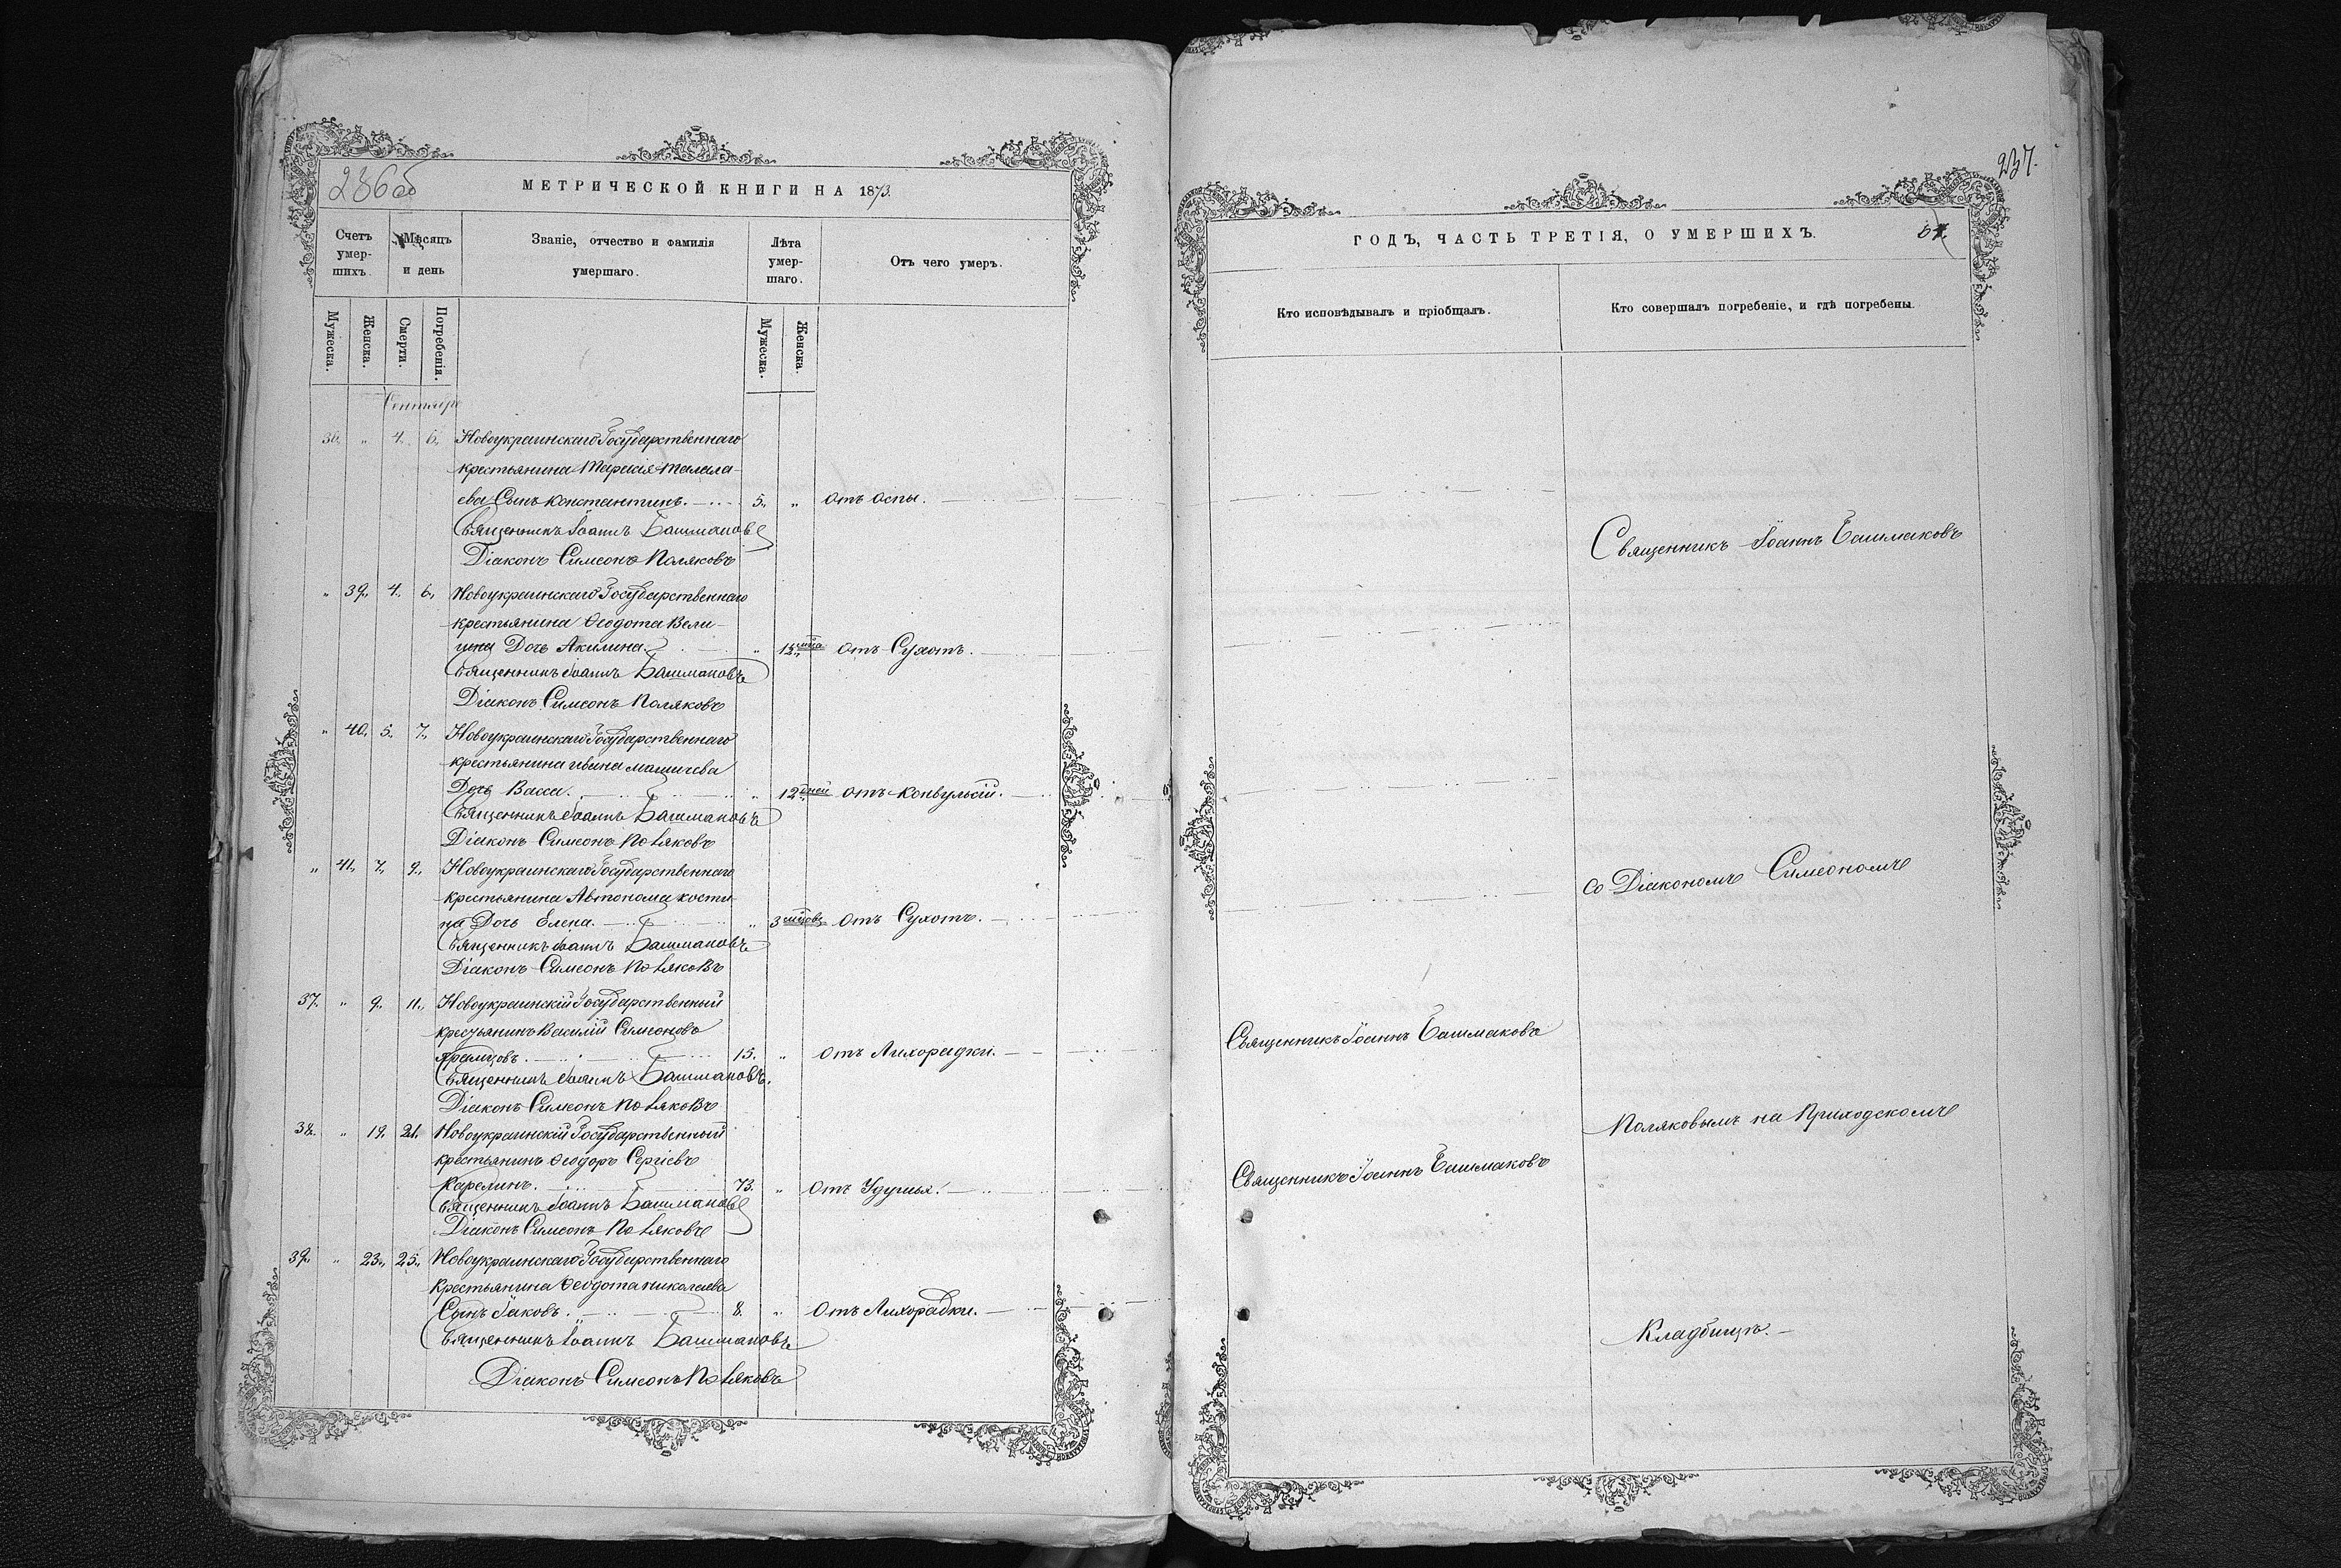 236об
МЕТРИЧЕСКОЙ КНИГИ НА 1873.
Счетъ умер-шихъ.
Мѣсяцъ и день
Званіе, отчество и фамилія умершаго.
Лѣта умер-шаго.
Отъ чего умеръ.
Мужеска.
Женска.
Смерти.
Погребенія.
Мужеска.
Женска.
Сентябрь
36. " 4. 6. Новоукраинскаго Государственнаго
крестьянина Тарасія Малала-
ева Сынъ Константинъ. 5. " Отъ Оспы.
Священникъ Іоаннъ Башмаковъ
Діаконъ Симеонъ Поляковъ
" 39. 4. 6. Новоукраинскаго Государственнаго
крестьянина Ѳеодота Вели-
Дочь Акилина. " 12 Отъ Сухотъ.
Священникъ Іоаннъ Башмаковъ
Діаконъ Симеонъ Поляковъ
" 40. 5. 7. Новоукраинскаго Государственнаго
крестьянина Ивана
Дочь Васса. " 12 дней Отъ Конвульсій.
Священникъ Іоаннъ Башмаковъ
Діаконъ Симеонъ Поляковъ
" 41. 7. 9. Новоукраинскаго Государственнаго
крестьянина Автонома Кости-
на Дочь Елена. " 3 мѣсцовъ Отъ Сухотъ.
Священникъ Іоаннъ Башмаковъ
Діаконъ Симеонъ Поляковъ
37. " 9. 11. Новоукраинскій Государственный
крестьянинъ Василій Симеоновъ
15. " Отъ Лихорадки.
Священникъ Іоаннъ Башмаковъ.
Діаконъ Симеонъ Поляковъ
38. " 19. 21. Новоукраинскій Государственный
крестьянинъ Ѳеодоръ Сергіевъ
Карелинъ. 73. " Отъ Удушья.
Священникъ Іоаннъ Башмаковъ
Діаконъ Симеонъ Поляковъ
39. " 23. 25. Новоукраинскаго Государственнаго
Крестьянина Ѳеодота Николаева
Сынъ Іаковъ. 8. " Отъ Лихорадки.
Священникъ Іоаннъ Башмаковъ
Діаконъ Симеонъ Поляковъ
237.
ГОДЪ, ЧАСТЬ ТРЕТІЯ, О УМЕРШИХЪ.
Кто исповѣдывалъ и пріобщалъ.
Кто совершалъ погребеніе, и гдѣ погребены.
Священникъ Іоаннъ Башмаковъ
со Діакономъ Симеономъ
Священникъ Іоаннъ Башмаковъ
Поляковымъ на Приходскомъ
Священникъ Іоаннъ Башмаковъ
Кладбищѣ.